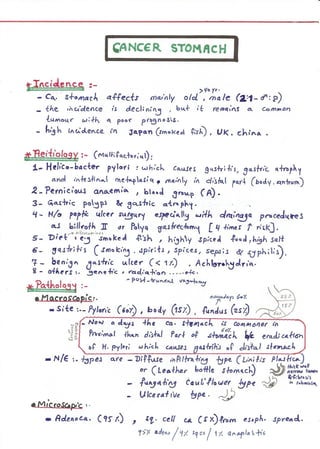 CANCER STOMACH
* Incidence :-
- Ca. stomach affects mainly old, male (2:1 - ♂:♀)
- the incidence is declining, but it remains a common
tumour with a poor prognosis.
- high incidence in Japan (smoked fish), UK, china.
* Aeitiology :- (Multifactorial):
1- Helico-bacter pylori : which causes gastritis, gastric atrophy
and intestinal metaplasia, mainly in distal part (body, antrum)
2. Pernicious anaemia, blood group (A).
3- Gastric polyps & gastric atrophy.
4- H/o peptic ulcer surgery especially with drainage procedures
as billroth II or Polya gastrectomy [4 times ↑ risk].
5- Diet : eg smoked fish, highly spiced food, high salt
6- gastritis (smoking, spirits, spices, sepsis & syphilis).
7- benign gastric ulcer (< 1%), Achlorohydria.
8- others :- genetic, radiation .....etc.
- post-truncal vagotomy
* Pathology :-
• Macroscopic:-
nowadays 60%
- Site :- Pyloric (60%), body (15%), fundus (25%)
25%
15%
- Now a days the ca. stomach is commoner in
Proximal than distal Part of stomach bc eradication
of H. pylori which causes gastritis of distal stomach
- N/E :- types are - Diffuse infiltrating type (Linitis Plastica)
or (Leather bottle stomach)
thick wall
narrow lumen
& fibrosis
in submucosa
- fungating Cauliflower type
- Ulcerative type.
• Microscopic :-
- Adenoca. (95%), sq. cell ca (5%) from esoph. spread.
95% adeno / 4% sqcc / 1% anaplastic